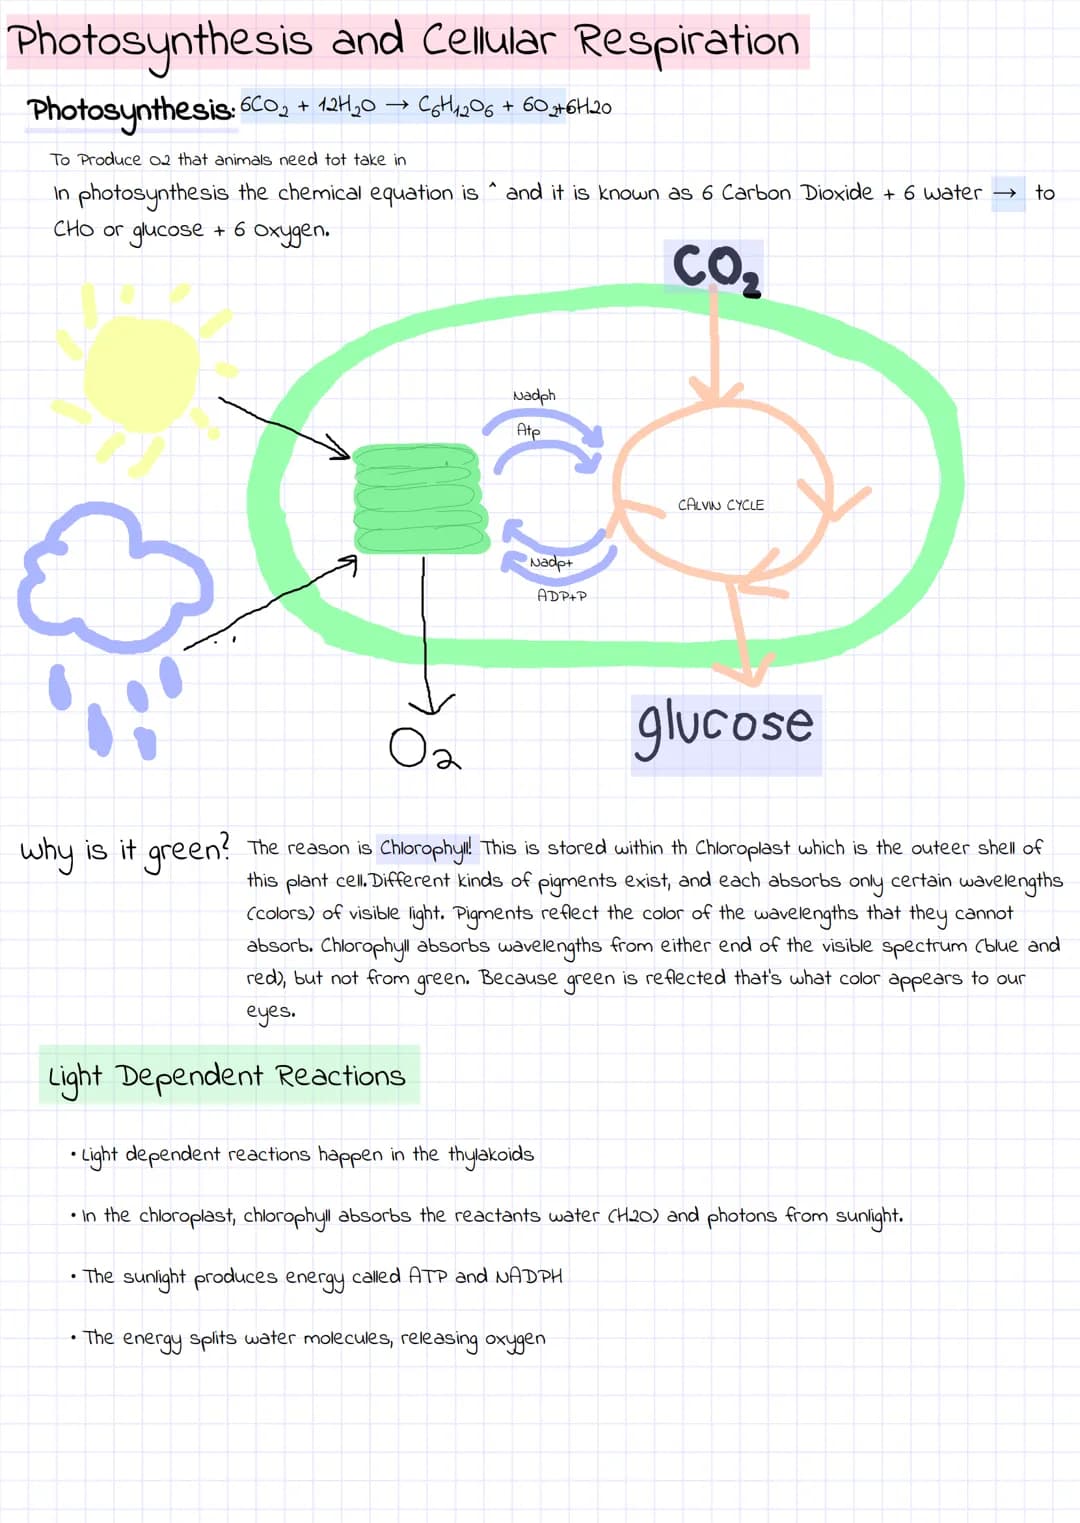 Photosynthesis and Cellular Respiration
Photosynthesis: 6CO₂ + 12H₂O → C₆H₁₂O₆ + 6O₂+6H2O
To Produce O2 that animals need tot take in
In photosynthesis the chemical equation is ^ and it is known as 6 Carbon Dioxide + 6 water → to
CHO or glucose + 6 Oxygen.
CO₂
Nadph
Atp
CALVIN CYCLE
Nadp+
ADP+P
O₂
glucose
why is it green? The reason is Chlorophyll! This is stored within th Chloroplast which is the outeer shell of
this plant cell. Different kinds of pigments exist, and each absorbs only certain wavelengths
(colors) of visible light. Pigments reflect the color of the wavelengths that they cannot
absorb. Chlorophyll absorbs wavelengths from either end of the visible spectrum (blue and
red), but not from green. Because green is reflected that's what color appears to our
eyes.
Light Dependent Reactions
• Light dependent reactions happen in the thylakoids
• In the chloroplast, chlorophyll absorbs the reactants water (H2O) and photons from sunlight.
• The sunlight produces energy called ATP and NADPH
• The energy splits water molecules, releasing oxygen